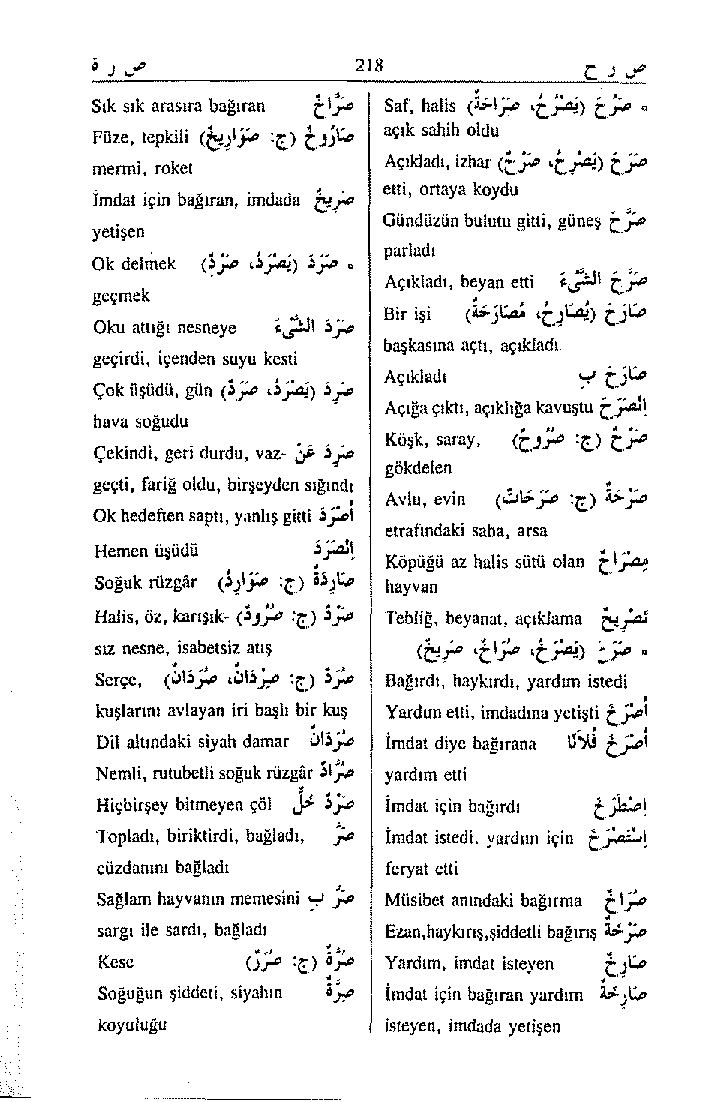 ص ر ح 218 ص ر ة
• صَرُحَ (يَصْرُحُ، صَرَاحَةً) Saf, halis
açık sahih oldu
صَرَحَ (يَصْرَحُ، صَرْحٌ) Açıkladı, izhar
etti, ortaya koydu
صَرَّحَ Gündüzün bulutu gitti, güneş
parladı
صَرَّحَ الشَّيْءَ Açıkladı, beyan etti
صَارَحَ (يُصَارِحُ، مُصَارَحَةً) Bir işi
başkasına açtı, açıkladı.
صَارَحَ بِ Açıkladı
إِنْصَرَحَ Açığa çıktı, açıklığa kavuştu
صَرْحٌ (ج: صُرُوحٌ) Köşk, saray,
gökdelen
صَرْحَةٌ (ج: صَرَحَاتٌ) Avlu, evin
etrafındaki saha, arsa
مِصْرَاحٌ Köpüğü az halis sütü olan
hayvan
تَصْرِيحٌ Tebliğ, beyanat, açıklama
• صَرَخَ (يَصْرُخُ، صُرَاخٌ، صَرِيخٌ)
Bağırdı, haykırdı, yardım istedi
أَصْرَخَ Yardım etti, imdadına yetişti
أَصْرَخَ فُلَانًا İmdat diye bağırana
yardım etti
إِصْطَرَخَ İmdat için bağırdı
إِسْتَصْرَخَ İmdat istedi. yardım için
feryat etti
صُرَاخٌ Müsibet anındaki bağırma
صَرْخَةٌ Ezan,haykırış,şiddetli bağırış
صَارِخٌ Yardım, imdat isteyen
صَارِخَةٌ İmdat için bağıran yardım
isteyen, imdada yetişen
صَرَّاخٌ Sık sık arasıra bağıran
صَارُوخٌ (ج: صَوَارِيخٌ) Füze, tepkili
mermi, roket
صَرِيخٌ İmdat için bağıran, imdada
yetişen
• صَرَدَ (يَصْرُدُ، صَرْدٌ) Ok delmek
geçmek
صَرَدَ الشَّيْءَ Oku attığı nesneye
geçirdi, içenden suyu kesti
صَرِدَ (يَصْرَدُ، صَرَدٌ) Çok üşüdü, gün
hava soğudu
صَرِدَ عَنْ Çekindi, geri durdu, vaz-
geçti, fariğ oldu, birşeyden sığındı
أَصْرَدَ Ok hedeften saptı, yanlış gitti
إِنْصَرَدَ Hemen üşüdü
صَارِدَةٌ (ج: صَوَارِدُ) Soğuk rüzgâr
صَرْدٌ (ج: صُرُودٌ) Halis, öz, karışık-
sız nesne, isabetsiz atış
صُرَدٌ (ج: صِرْدَانٌ، صُرْدَانٌ) Serçe,
kuşlarını avlayan iri başlı bir kuş
صُرْدَانٌ Dil altındaki siyah damar
صُرَّادٌ Nemli, rutubetli soğuk rüzgâr
صَرْدٌ خَلٌ Hiçbirşey bitmeyen çöl
صَرَّ Topladı, biriktirdi, bağladı,
cüzdanını bağladı
صَرَّ بِ Sağlam hayvanın memesini
sargı ile sardı, bağladı
صُرَّةٌ (ج: صُرَرٌ) Kese
صِرَّةٌ Soğuğun şiddeti, siyahın
koyuluğu